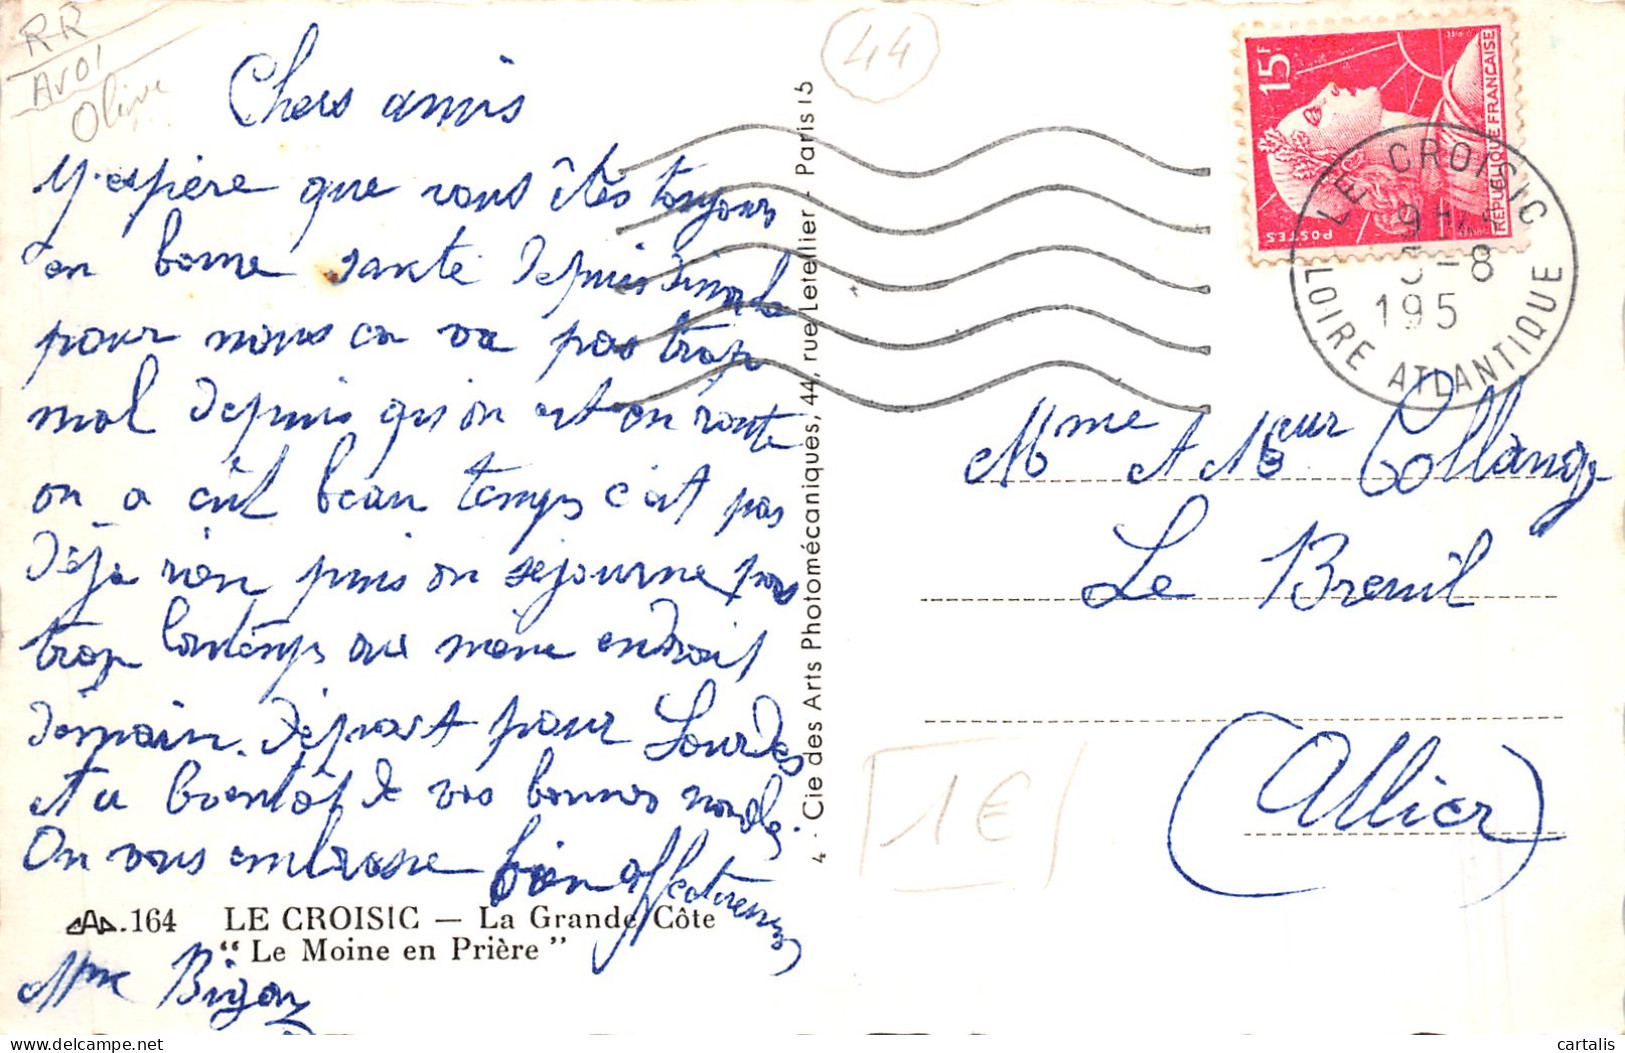 RR
Avoi
Olive
44
Chers amis
J'espère que vous êtes toujours
en bonne santé depuis dimanche
pour nous ca va pas trop
mal depuis qu'on est en route
on a eut beau temps c'est pas
déjà rien puis on séjourne pas
trop lontemps au même endroit
demain. départ pour Lourdes
et a bientôt de vos bonnes nouvelles.
On vous embrasse bien affectueusement
164 LE CROISIC — La Grande Côte
“ Le Moine en Prière ”
Mme
4 - Cie des Arts Photomécaniques, 44, rue Letellier - Paris 15
15F
POSTES
REPUBLIQUE FRANÇAISE
LE CROISIC
9H
-8
195
LOIRE ATLANTIQUE
Mme et Mosieur Collange
Le Breuil
(Allier)
1€
cartalis